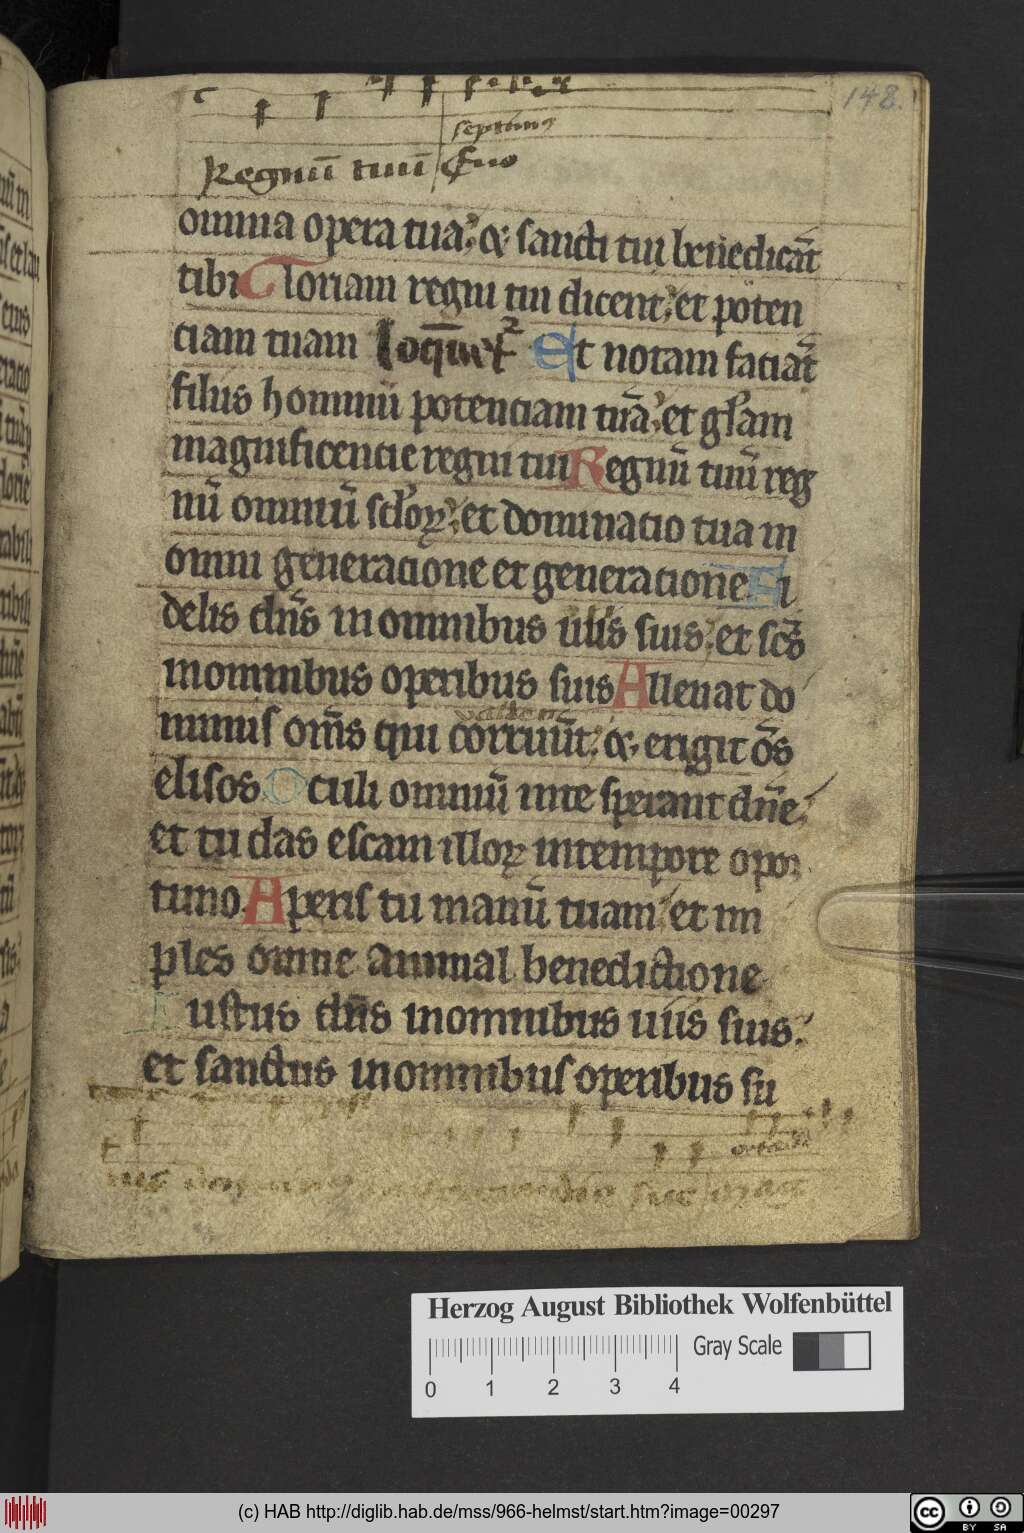 148.
septimus
Regnū tuū Euo
omnia opera tua; & sancti tui benedicāt
tibi Gloriam regni tui dicent; et poten
ciam tuam loquēt᷑ Et notam faciāt
filiis hominū potenciam tuā; et gl̄am
magnificencie regni tui Regnū tuū reg
nū omniū sclōꝝ; et dominatio tua in
omni generacione et generacione Fi
delis dn̄s in omnibus u̇iis suis; et scs̄
in omnibus operibus suis Alleuat do
minus om̄s qui corruūt; & erigit os̄
elisos Oculi omniū in te sperant dn̄e;
et tu das escam illoꝝ in tempore opor
tuno Aperis tu manū tuam et im
ples omne animal benedictione
Iustus dn̄s in omnibus uiis suis.
et sanctus in omnibus operibus su
Herzog August Bibliothek Wolfenbüttel
Gray Scale
0 1 2 3 4
(c) HAB http://diglib.hab.de/mss/966-helmst/start.htm?image=00297
cc BY SA